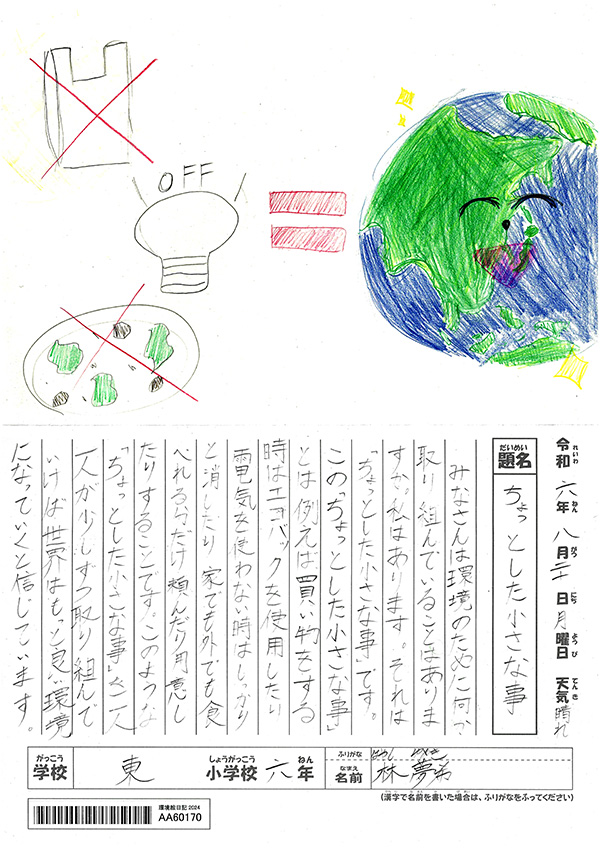 OFF
令和 六年 八月 日 月曜日 天気 晴れ
れいわ ねん がつ にち ようび てんき
だいめい
題名 ちょっとした小さな事
みなさんは環境のために何か
取り組んでいることはありま
すか。私はあります。それは
「ちょっとした小さな事」です。
この「ちょっとした小さな事」
とは例えば買い物をする
時はエコバックを使用したり
電気を使わない時はしっかり
と消したり家でも外でも食
べれる分だけ頼んだり用意し
たりすることです。このような
「ちょっとした小さな事」を一人
一人が少しずつ取り組んで
いけば世界はもっと良い環境
になっていくと信じています。
がっこう しょうがっこう ねん ふりがな
学校 東 小学校 六年 なまえ 名前 林 夢
(漢字で名前を書いた場合は、ふりがなをふってください)
環境絵日記 2024
AA60170